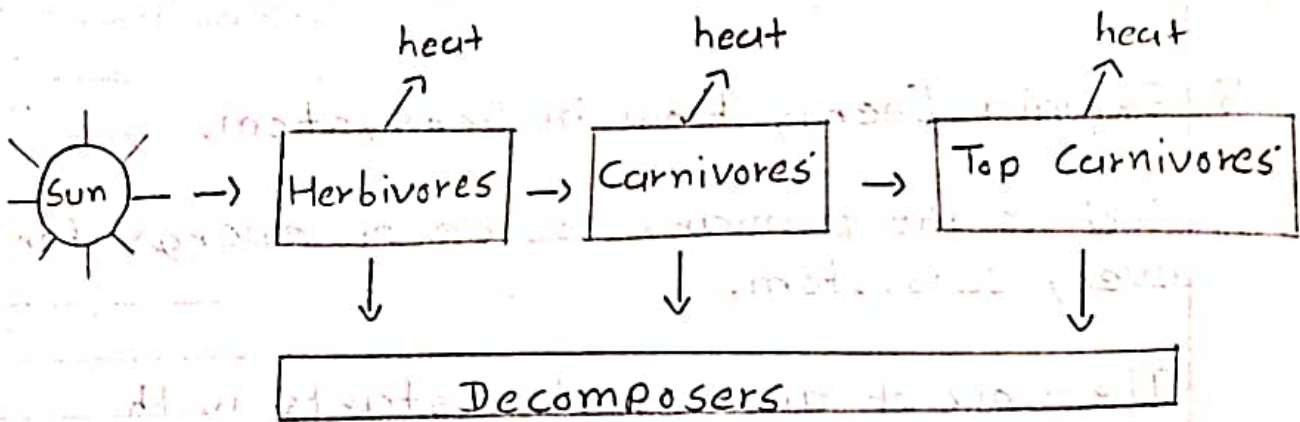 heat heat heat
Sun Herbivores Carnivores Top Carnivores
Decomposers